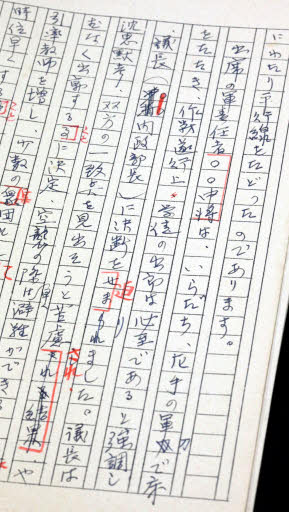 にわたり平行線をたどったのであります。
出席の軍責任者〇〇中将は、いらだち、片手の軍刀で床
をたたき、作戦遂行上、学徒の出動は必至であると強調し
議長（内政部長）に決断を迫りました。議長は
沈思黙考、双方の一致点を見出そうと苦慮され 結果、や
むなく出動する に決定、空襲の際は避難ができる
引率教師を増し、少数の
時位早くする